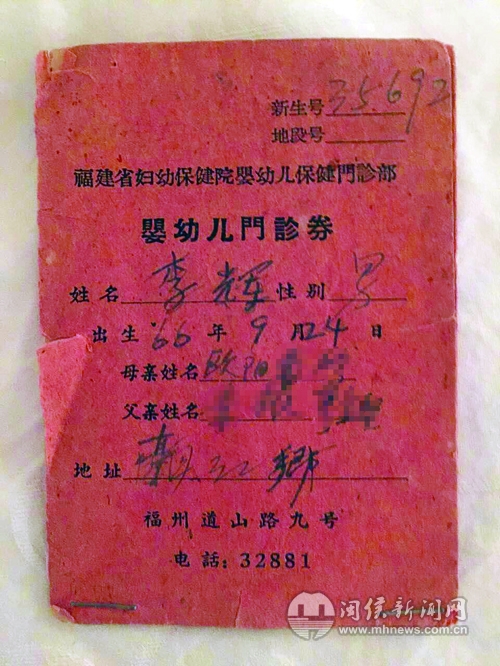 新生号 35692
地段号
福建省妇幼保健院嬰幼儿保健門診部
嬰幼儿門診券
姓名 李輝 性别 男
出生 66 年 9 月 24 日
母亲姓名 欧阳
父亲姓名
地址 红卿
福州道山路九号
电話：32881
闽侯新闻网
www.mhnews.com.cn